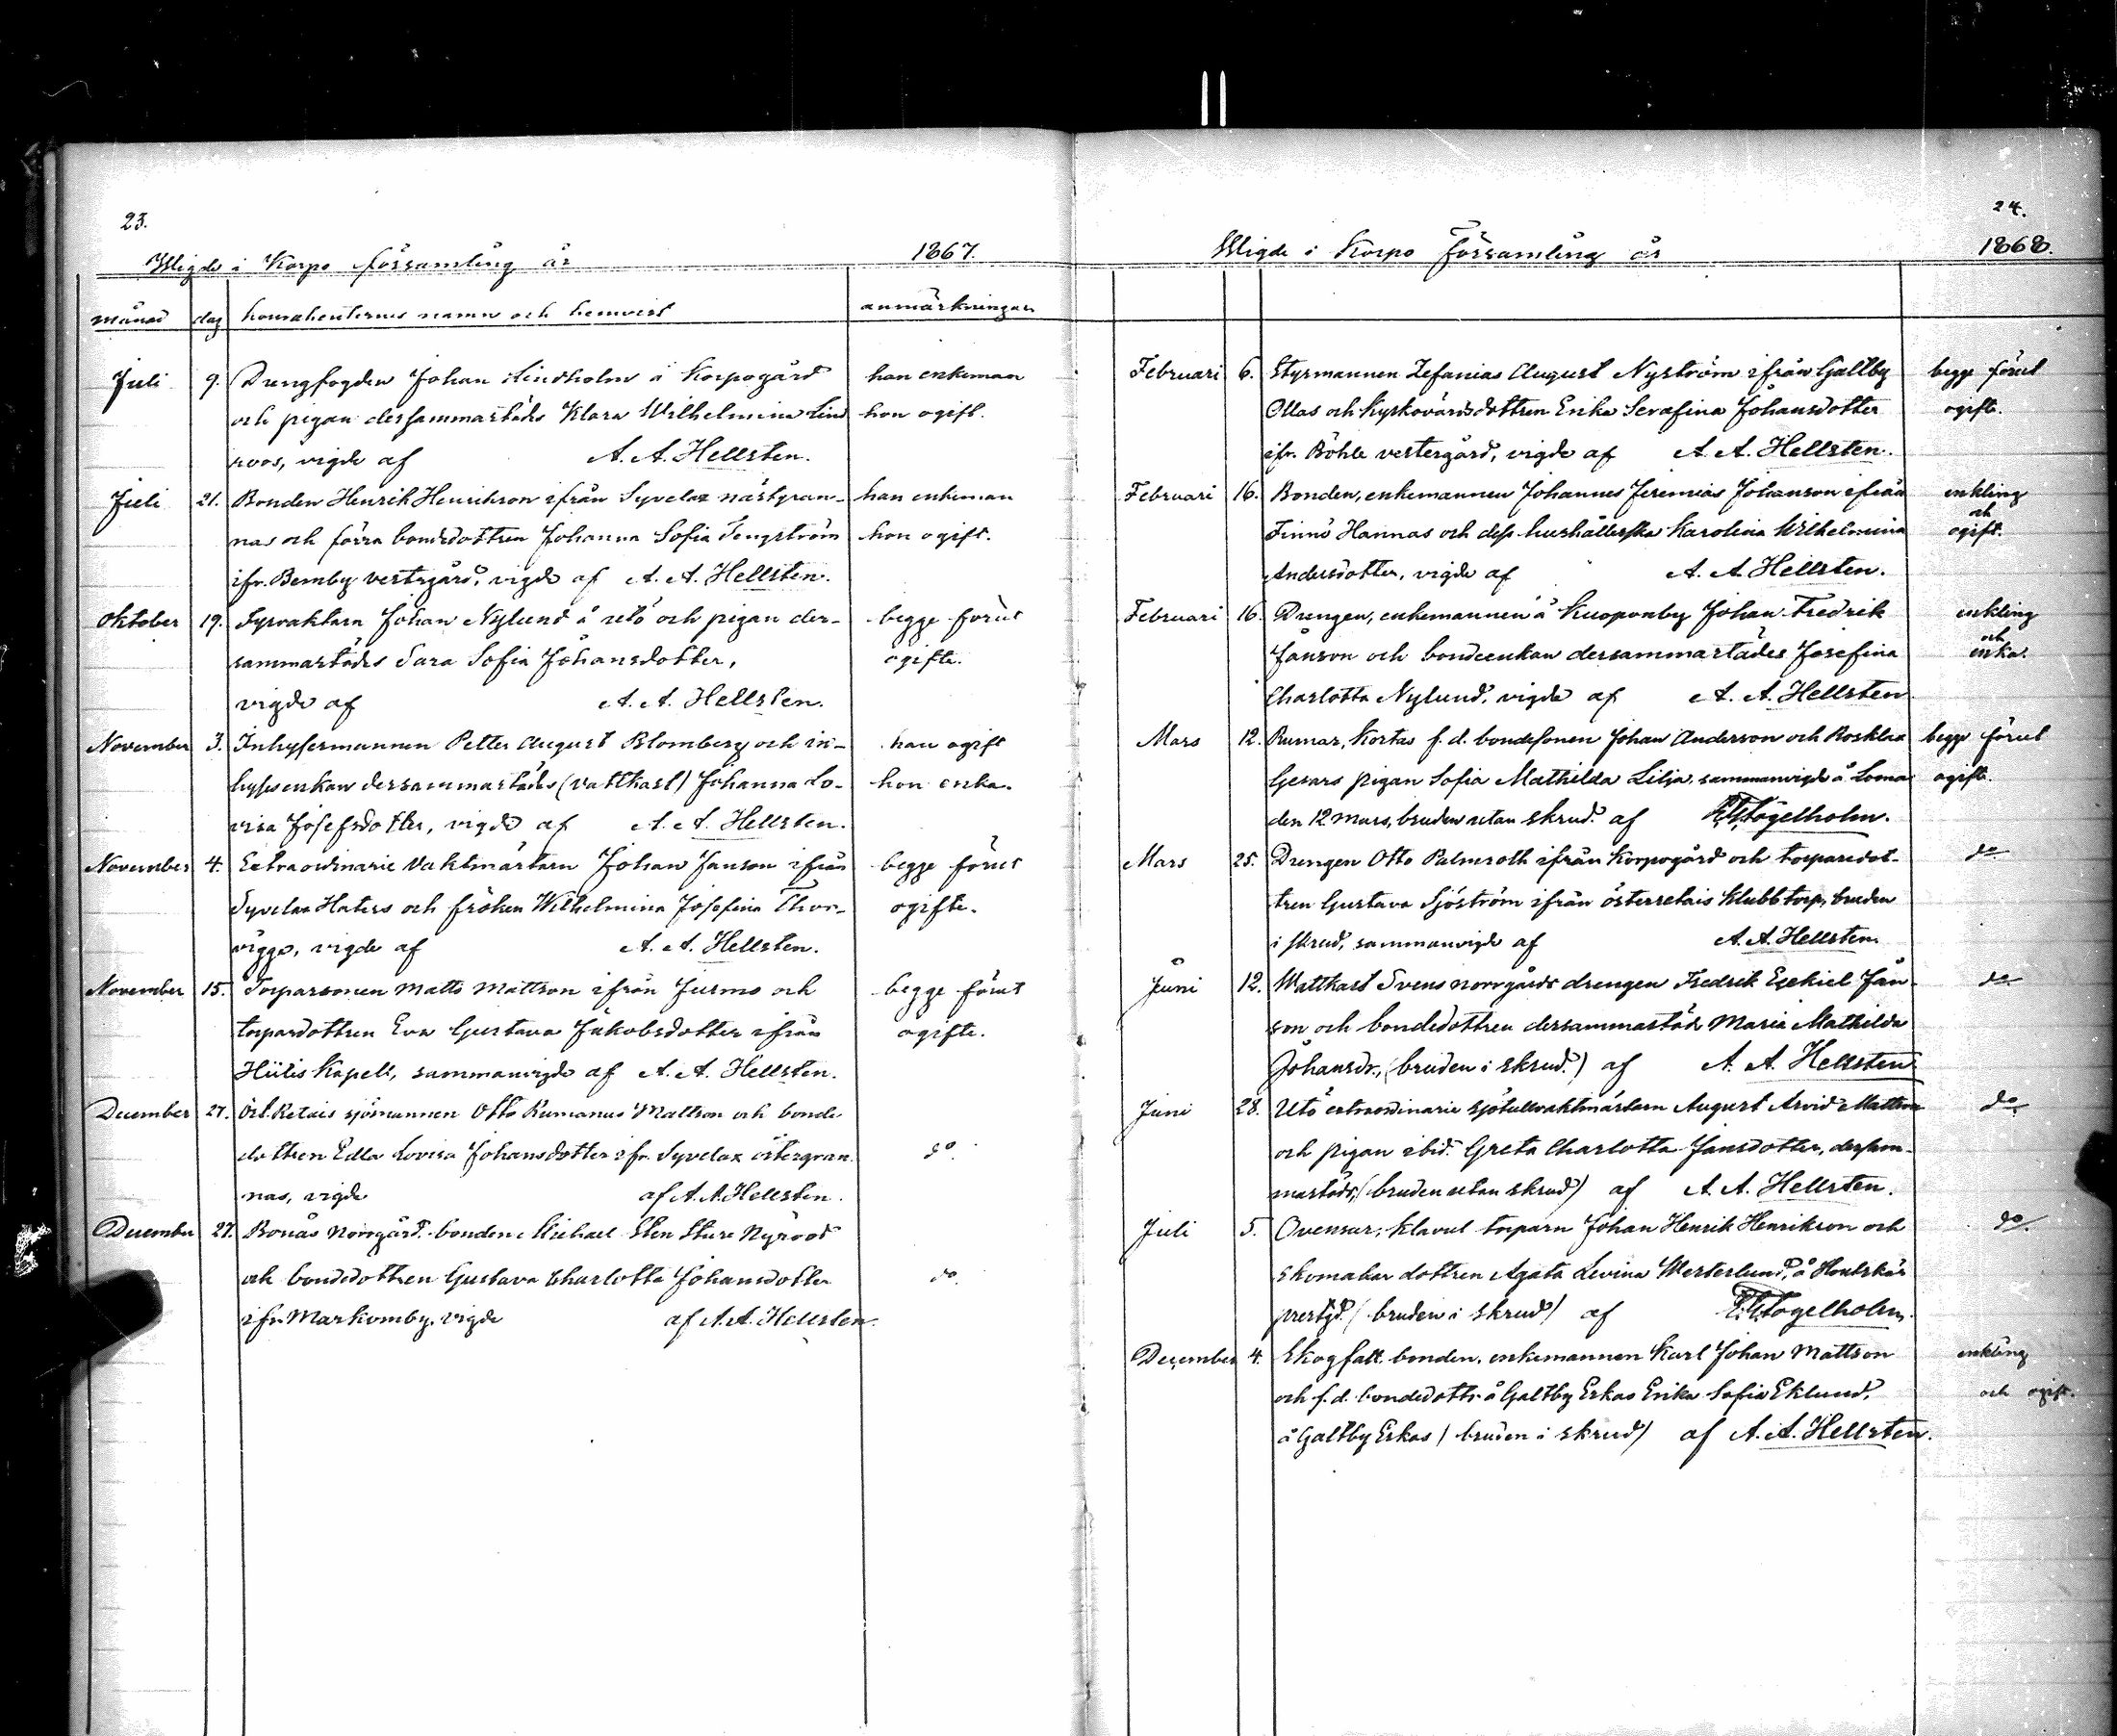 23.
Wigde i Korpo församling år 1867.
månad dag kontrahenternes namn och hemvist anmärkningar
Juli 9. Drengfogden Johan Lindholm å Korpogård han enkeman
och pigan dersammastädes Klara Wilhelmina Lind hon ogift.
roos, vigde af A. A. Hellsten.
Juli 21. Bonden Henrik Henrikson ifrån Syvelax nästgran- han enkeman
nas och förra bondedottren Johanna Sofia Tengström hon ogift.
ifr. Bemby vestergård, vigde af A. A. Hellsten.
Oktober 19. Fyrvaktarn Johan Nylund å Utö och pigan der- begge förut
sammastädes Sara Sofia Johansdotter, ogifte.
vigde af A. A. Hellsten.
November 3. Inhysesmannen Petter August Blomberg och in- han ogift
hyses enkan dersammastädes (Vattkast) Johanna Lo- hon enka.
visa Josefsdotter, vigde af A. A. Hellsten.
November 4. Extraordinarie Vaktmästarn Johan Janson ifrån begge förut
Syvelax Haters och fröken Wilhelmina Josefina Thor- ogifte.
vigge, vigde af A. A. Hellsten.
November 15. Torparsonen Matts Mattson ifrån Jurmo och begge förut
torpardottren Eva Gustava Jakobsdotter ifrån ogifte.
Hiitis Kapell, sammanvigde af A. A. Hellsten.
December 27. Öst. Retais sjömannen Otto Rumanus Mattson och bonde
dottren Edla Lovisa Johansdotter ifr. Syvelax östergran do.
nas, vigde af A. A. Hellsten.
December 27. Bonäs norrgård bonden Michael Sten Sture Nyroos
och bondedottren Gustava Charlotta Johansdotter do.
ifr. Markomby, vigde af A. A. Hellsten.
24.
Wigde i Korpo församling år 1868.
Februari 6. Styrmannen Zefanias August Nyström ifrån Galtby begge förut
Ollas och kyrkovärdsdottren Erika Serafina Johansdotter ogifte.
ifr. Böhle vestergård, vigde af A. A. Hellsten.
Februari 16. Bonden, enkemannen Johannes Jeremias Johanson ifrån enkling
och
Finnö Hannas och dess hushållerska Karolina Wilhelmina ogift.
Andersdotter, vigde af A. A. Hellsten.
Februari 16. Drengen, enkemannen å Knoponby Johan Fredrik enkling
och
Janson och bondeenkan dersammastädes Josefina enka.
Charlotta Nylund, vigde af A. A. Hellsten.
Mars 12. Rumar, Kortas f. d. bondesonen Johan Anderson och Rosklax begge förut
Gesars pigan Sofia Mathilda Lilja, sammanvigde å Loma ogifte.
den 12 Mars, bruden utan skrud. af Fogelholm.
Mars 25. Drengen Otto Palmroth ifrån Korpogård och torparedot- do
tren Gustava Sjöström ifrån österretais Klubb torp, bruden
i skrud, sammanvigde af A. A. Hellsten.
Juni 12. Wattkast Svens norrgårds drengen Fredrik Ezekiel Jan- do
son och bondedottren dersammastäds Maria Mathilda
Johansdr., (bruden i skrud.) af A. A. Hellsten
Juni 28. Utö extraordinarie sjötullvaktmästarn August Arvid Mattson do.
och pigan ibid. Greta Charlotta Jansdotter, dersam-
mastäds, (bruden utan skrud) af A. A. Hellsten.
Juli 5. Ovensor, Klavul torparn Johan Henrik Henrikson och do.
skomakar dottren Agata Levina Westerlund, å Houtskär
prestgd. (bruden i skrud) af Fogelholm.
December 4. Skogfatt. bonden, enkemannen Karl Johan Mattson enkling
och f. d. bondedottr å Galtby Eskas Erika Sofia Eklund, och ogift.
å Galtby Eskas (bruden i skrud) af A. A. Hellsten.